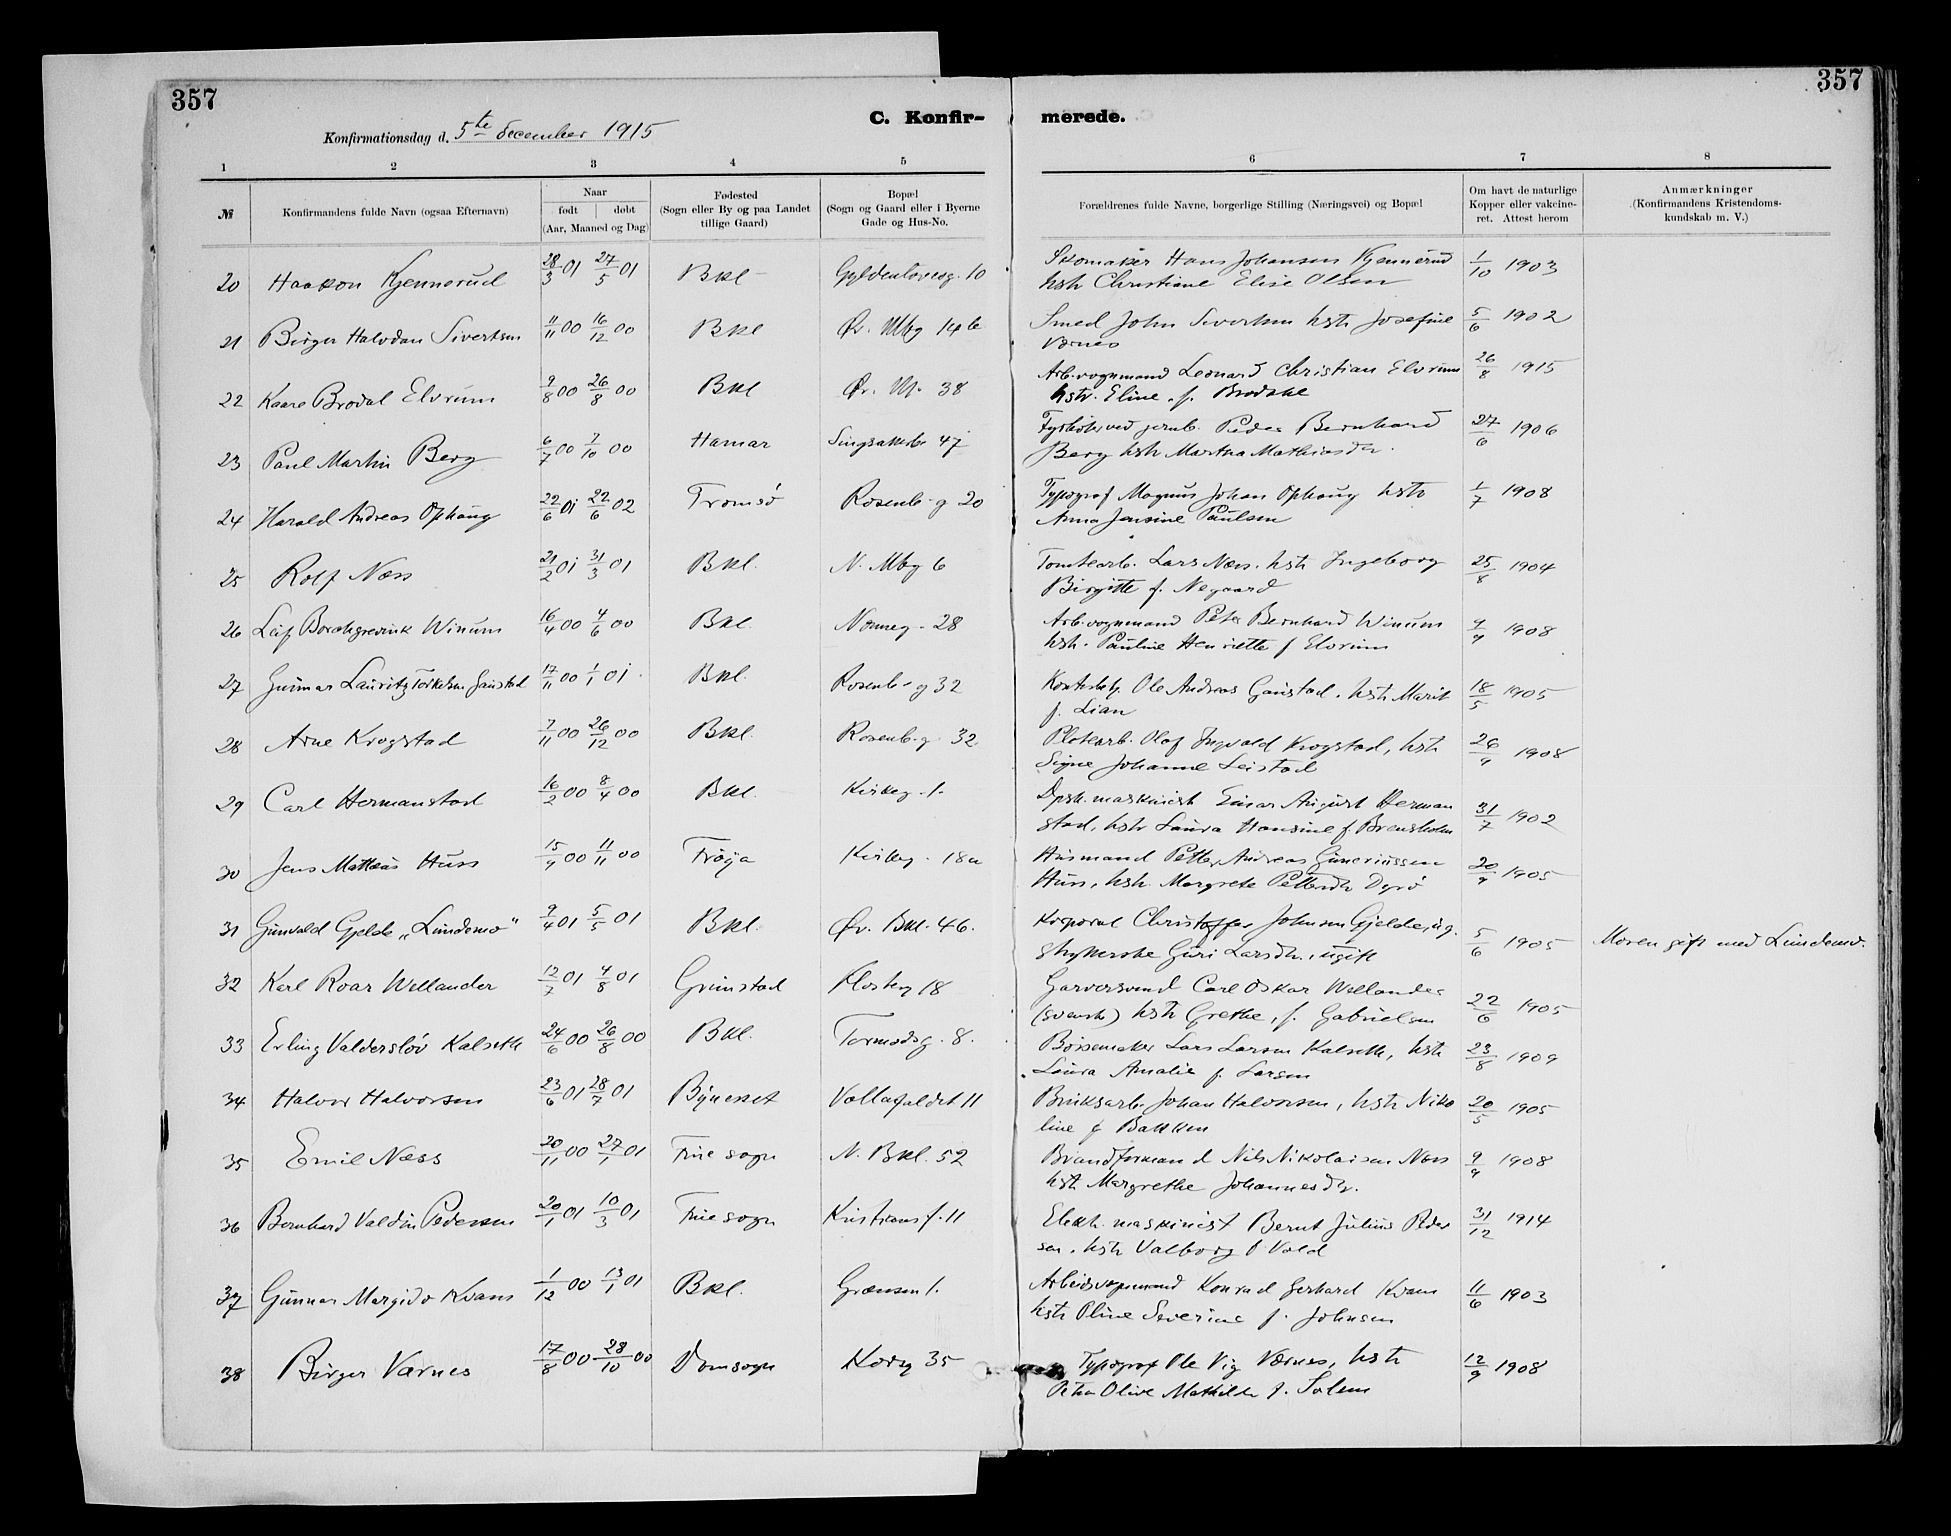 357
357
C. Konfir-
merede.
Konfirmationsdag d. 5te december 1915
1 2 3 4 5
6 7 8
№
Konfirmandens fulde Navn (ogsaa Efternavn)
Naar
født døbt
(Aar, Maaned og Dag)
Fødested
(Sogn eller By og paa Landet
tillige Gaard)
Bopæl
(Sogn og Gaard eller i Byerne
Gade og Hus-No.
Forældrenes fulde Navne, borgerlige Stilling (Næringsvei) og Bopæl
Om havt de naturlige
Kopper eller vakcine-
ret. Attest herom
Anmærkninger
(Konfirmandens Kristendoms-
kundskab m. V.)
20 Haakon Kjennerud 28/3 01 27/5 01 Bkl Gyldenløvesg. 10
Skomaker Hans Johansen Kjennerud 1/10 1903
hstr Christiane Elise Olsen
21 Birger Halvdan Sivertsen 11/11 00 16/12 00 Bkl Øv. Mbg 14b
Smed John Sivertsen hstr Josefine 5/6 1902
Værnes
22 Kaare Brodal Elvrum 9/8 00 26/8 00 Bkl Øv. 38
Arb. vognmand Leonard Christian Elvrum 26/8 1915
hstr. Eline f. Brodahl
23 Paul Martin Berg 6/7 00 7/10 00 Hamar 47
Fyrbøter ved jernb. Peder Bernhard 27/6 1906
Berg hstr Martha Mathiasdr.
24 Harald Andreas Ophaug 22/6 01 22/6 02 Tromsø Rosenb-g 20
Typograf Magnus Johan Ophaug hstr 1/7 1908
Anna Jensine Paulsen
25 Rolf Næss 21/2 01 31/3 01 Bkl. N. Mbg 6
Tomtearb. Lars Næss. hstr Ingeborg 25/8 1904
Birgitte f. Negaard
26 Leif Borchgrevink Winum 16/4 00 4/6 00 Bkl. Nonneg. 28
Arb. vognmand Peter Bernhard Winum 4/9 1908
hstr. Pauline Henriette f Elvrum
27 Gunnar Lauritz Torkelsen Gaustad 17/11 00 1/1 01 Bkl. Rosenb-g 32
Ole Andreas Gaustad. hstr Marit 18/5 1905
f. Lian
28 Arne Krogstad 7/11 00 26/12 00 Bkl. Rosenb-g. 32
Olaf Ingvald Krogstad, hstr 26/9 1908
Signe Johanne Leistad
29 Carl Hermanstad 16/2 00 8/4 00 Bkl. Kirkeg. 1.
Dpsk. maskinist Einar August Herman 31/7 1902
stad, hstr Laura Hansine f
30 Jens Mattæus Huss 15/9 00 11/11 00 Frøya Kirkeg. 18a
Husmand Petter Andreas Guneriussen 20/9 1905
Huss, hstr. Margrete Pettersdr Dyrø
31 Gunvald Gjelde „Lundemo“ 9/4 01 5/5 01 Bkl. Øv. Bkl. 46.
Korporal Christoffer Johnsen Gjelde, ug. 5/6 1905 Moren gift med Lundemo.
strykerske Guri Larsdr., ugift
32 Karl Roar Wellander 12/7 01 4/8 01 Grimstad Klosterg 18
Garversvend Carl Oskar Wellander 22/6 1905
(svensk) hstr Grethe, f. Gabrielsen
33 Erling Valdersløv Kalseth 24/6 00 26/8 00 Bkl. Tormodsg. 8.
Børsemaker Lars Larsen Kalseth, hstr 23/8 1909
Laura Amalie f. Larsen
34 Halvor Halvorsen 23/6 01 28/7 01 Bynesset Vollafaldet 11
Bruksarb. Johan Halvorsen, hstr Niko 20/5 1905
line f Bakken
35 Emil Næss 20/11 00 27/1 01 Frue sogn N. Bkl. 52
Brandformand Nils Nikolaisen Næss 9/9 1908
hstr Margrethe Johannesdr.
36 Bernhard Valdin Pedersen 20/1 01 10/3 01 Frue sogn Kristiansf. 11
Elektr. maskinist Bernt Julius Peder 31/12 1914
sen. hstr Valborg f Vold
37 Gunnar Margido Kvam 1/12 00 13/1 01 Bkl. Grænsen 1.
Arbeidsvognmand Konrad Gerhard Kvam 11/6 1903
hstr Oline Severine f. Johnsen
38 Birger Værnes 17/8 00 28/10 00 Domsogn 35
Typograf Ole Vig Værnes, hstr 12/9 1908
Petra Olive Mathilde f. Solem